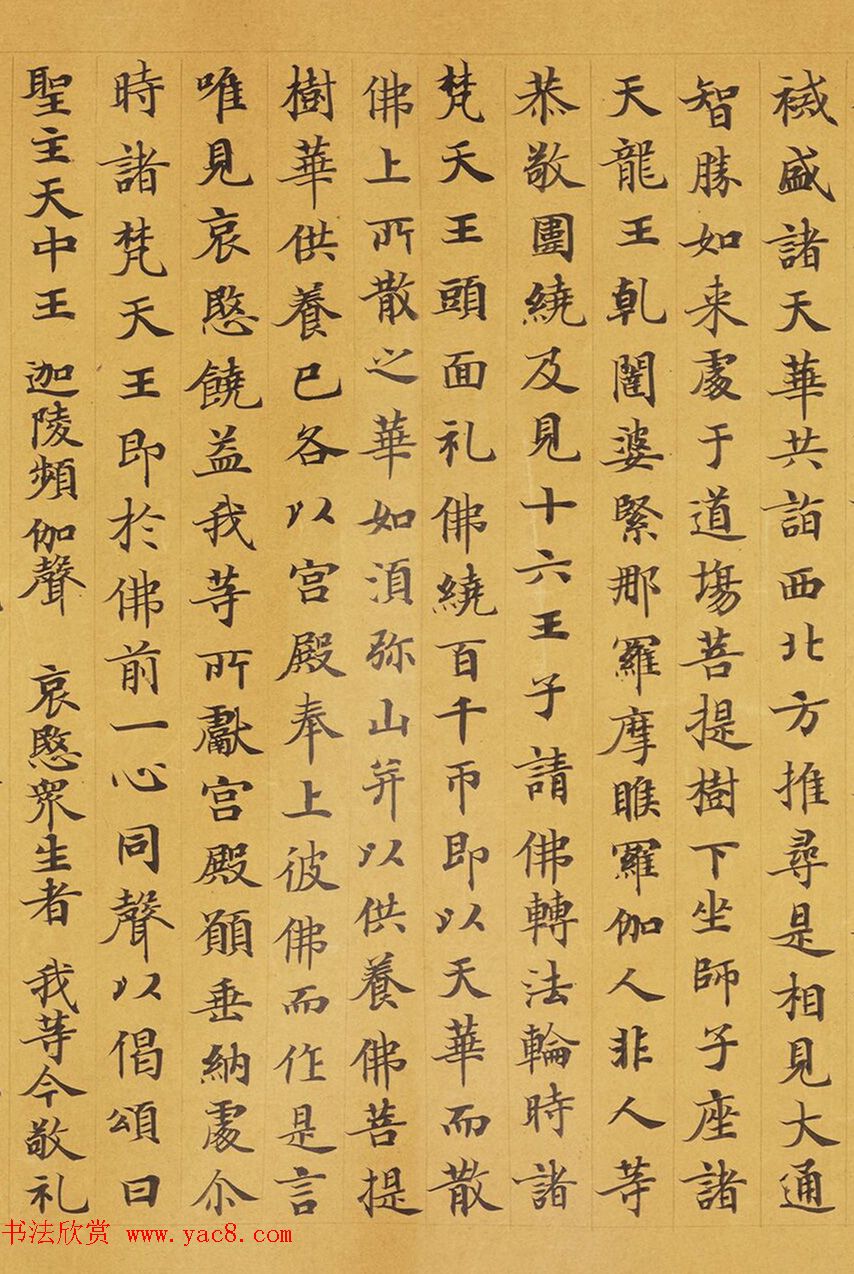 祴盛諸天華共詣西北方推尋是相見大通
智勝如来處于道場菩提樹下坐師子座諸
天龍王乹闥婆緊那羅摩睺羅伽人非人等
恭敬圍繞及見十六王子請佛轉法輪時諸
梵天王頭面礼佛繞百千帀即以天華而散
佛上所散之華如湏弥山并以供養佛菩提
樹華供養已各以宫殿奉上彼佛而作是言
唯見哀愍饒益我等所獻宫殿願垂納處尒
時諸梵天王即於佛前一心同聲以偈頌曰
聖主天中王 迦陵頻伽聲 哀愍衆生者 我等今敬礼
书法欣赏 www.yac8.com